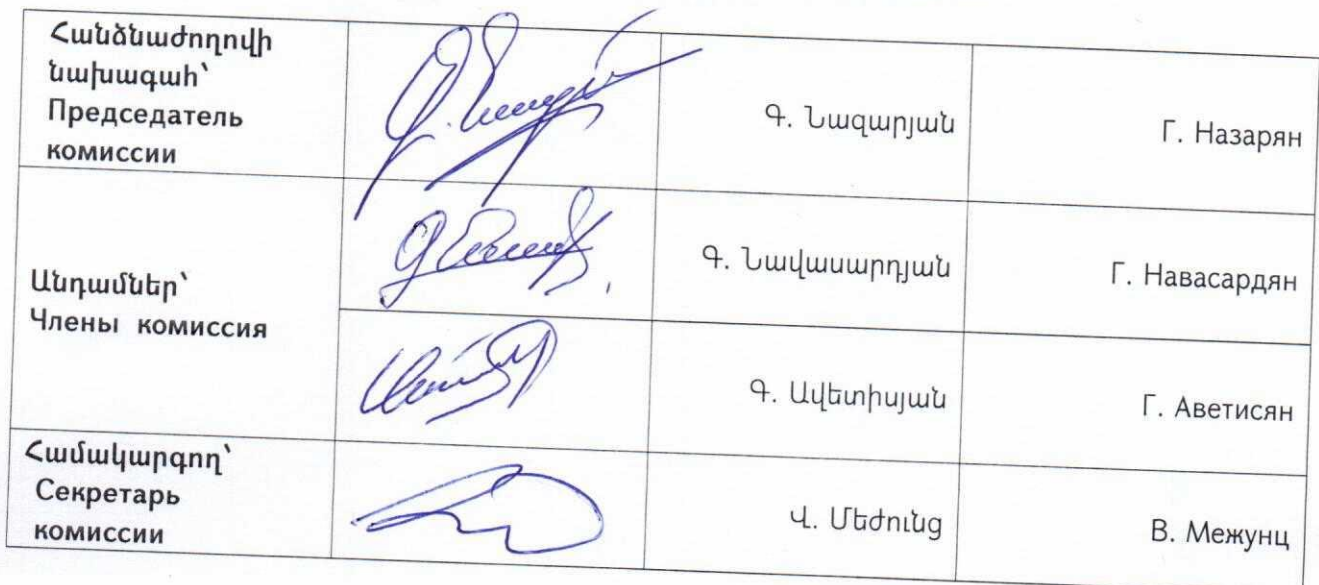 Հանձնաժողովի
նախագահ՝
Председатель
комиссии
Գ. Նազարյան
Г. Назарян
Անդամներ՝
Члены комиссия
Գ. Նավասարդյան
Г. Навасардян
Գ. Ավետիսյան
Г. Аветисян
Համակարգող՝
Секретарь
комиссии
Վ. Մեժունց
В. Межунц